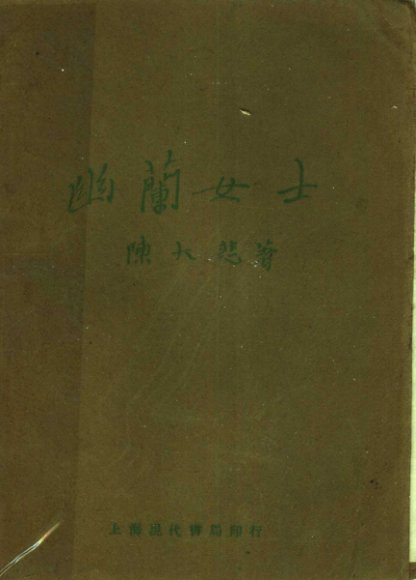 幽蘭女士
陳大悲著
上海現代書局印行